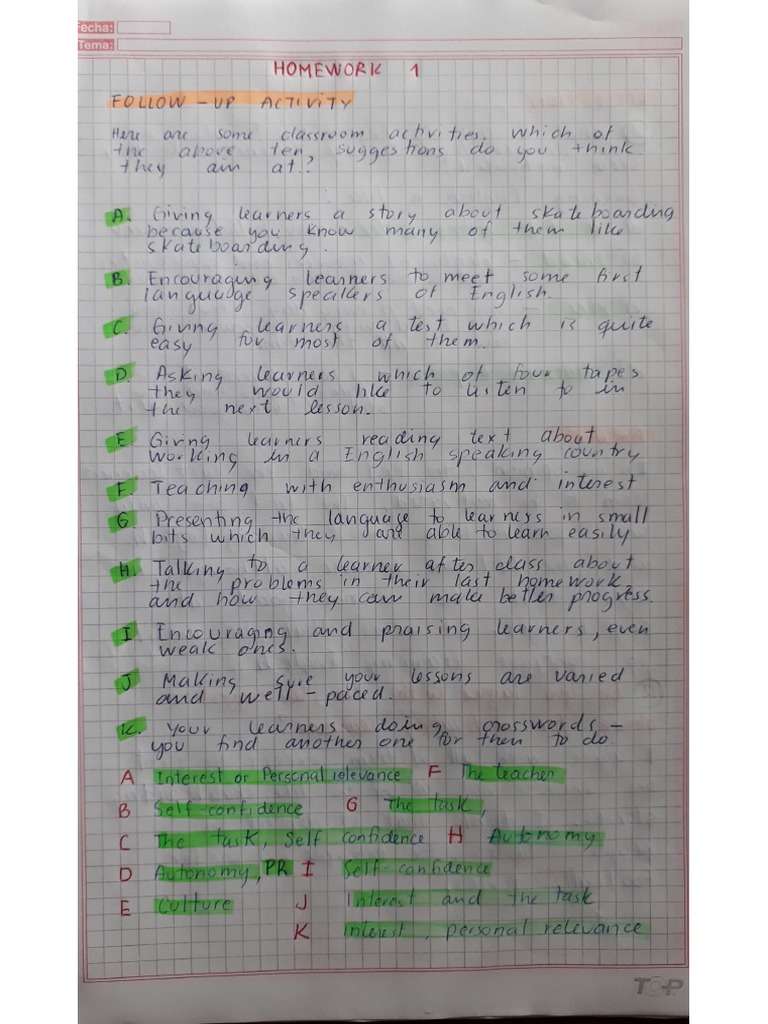 Fecha:
Tema:
HOMEWORK 1
FOLLOW-UP ACTIVITY
Here are some classroom activities. Which of
the above ten suggestions do you think
they aim at?
A. Giving learners a story about skateboarding
because you know many of them like
skateboarding.
B. Encouraging learners to meet some first
language speakers of English.
C. Giving learners a test which is quite
easy for most of them.
D. Asking learners which of four tapes
they would like to listen to in
the next lesson.
E. Giving learners reading text about
working in a English speaking country
F. Teaching with enthusiasm and interest
G Presenting the language to learners in small
bits which they are able to learn easily
H. Talking to a learner after class about
the problems in their last homework,
and how they can make better progress.
I. Encouraging and praising learners, even
weak ones.
J Making sure your lessons are varied
and well-paced.
K. your learners doing crosswords -
you find another one for them to do.
A Interest or Personal relevance F The teacher
B Self-confidence G The task,
C The task, Self confidence H Autonomy
D Autonomy, PR I Self-confidence
E Culture J Interest and the task
K Interest, personal relevance
TOP